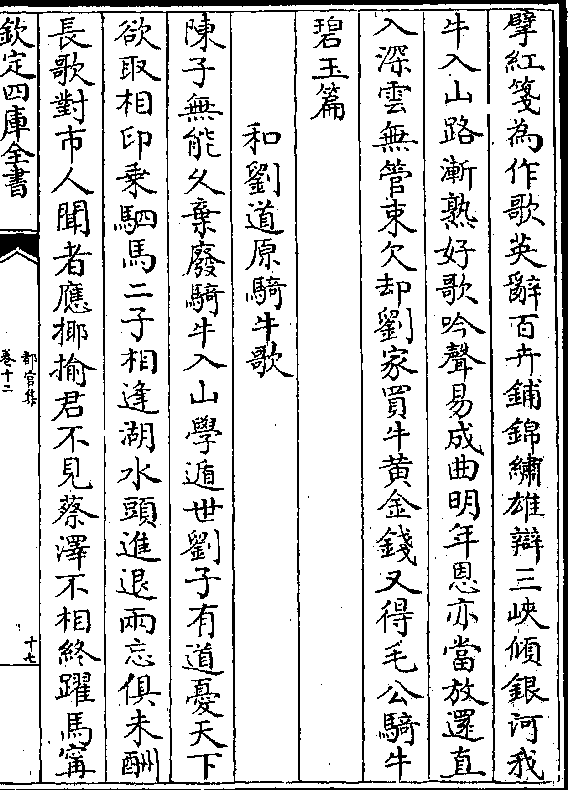 擘紅箋為作歌英辭百卉鋪錦繡雄辯三峽傾銀河我
牛入山路漸熟好歌吟聲易成曲明年恩亦當放還直
入深雲無管束欠却劉家買牛黄金錢又得毛公騎牛
碧玉篇
和劉道原騎牛歌
陳子無能久棄廢騎牛入山學遁世劉子有道憂天下
欲取相印乗駟馬二子相逢湖水頭進退兩忘俱未酬
長歌對市人聞者應揶揄君不見蔡澤不相終躍馬甯
欽定四庫全書
都官集
卷十二
十七